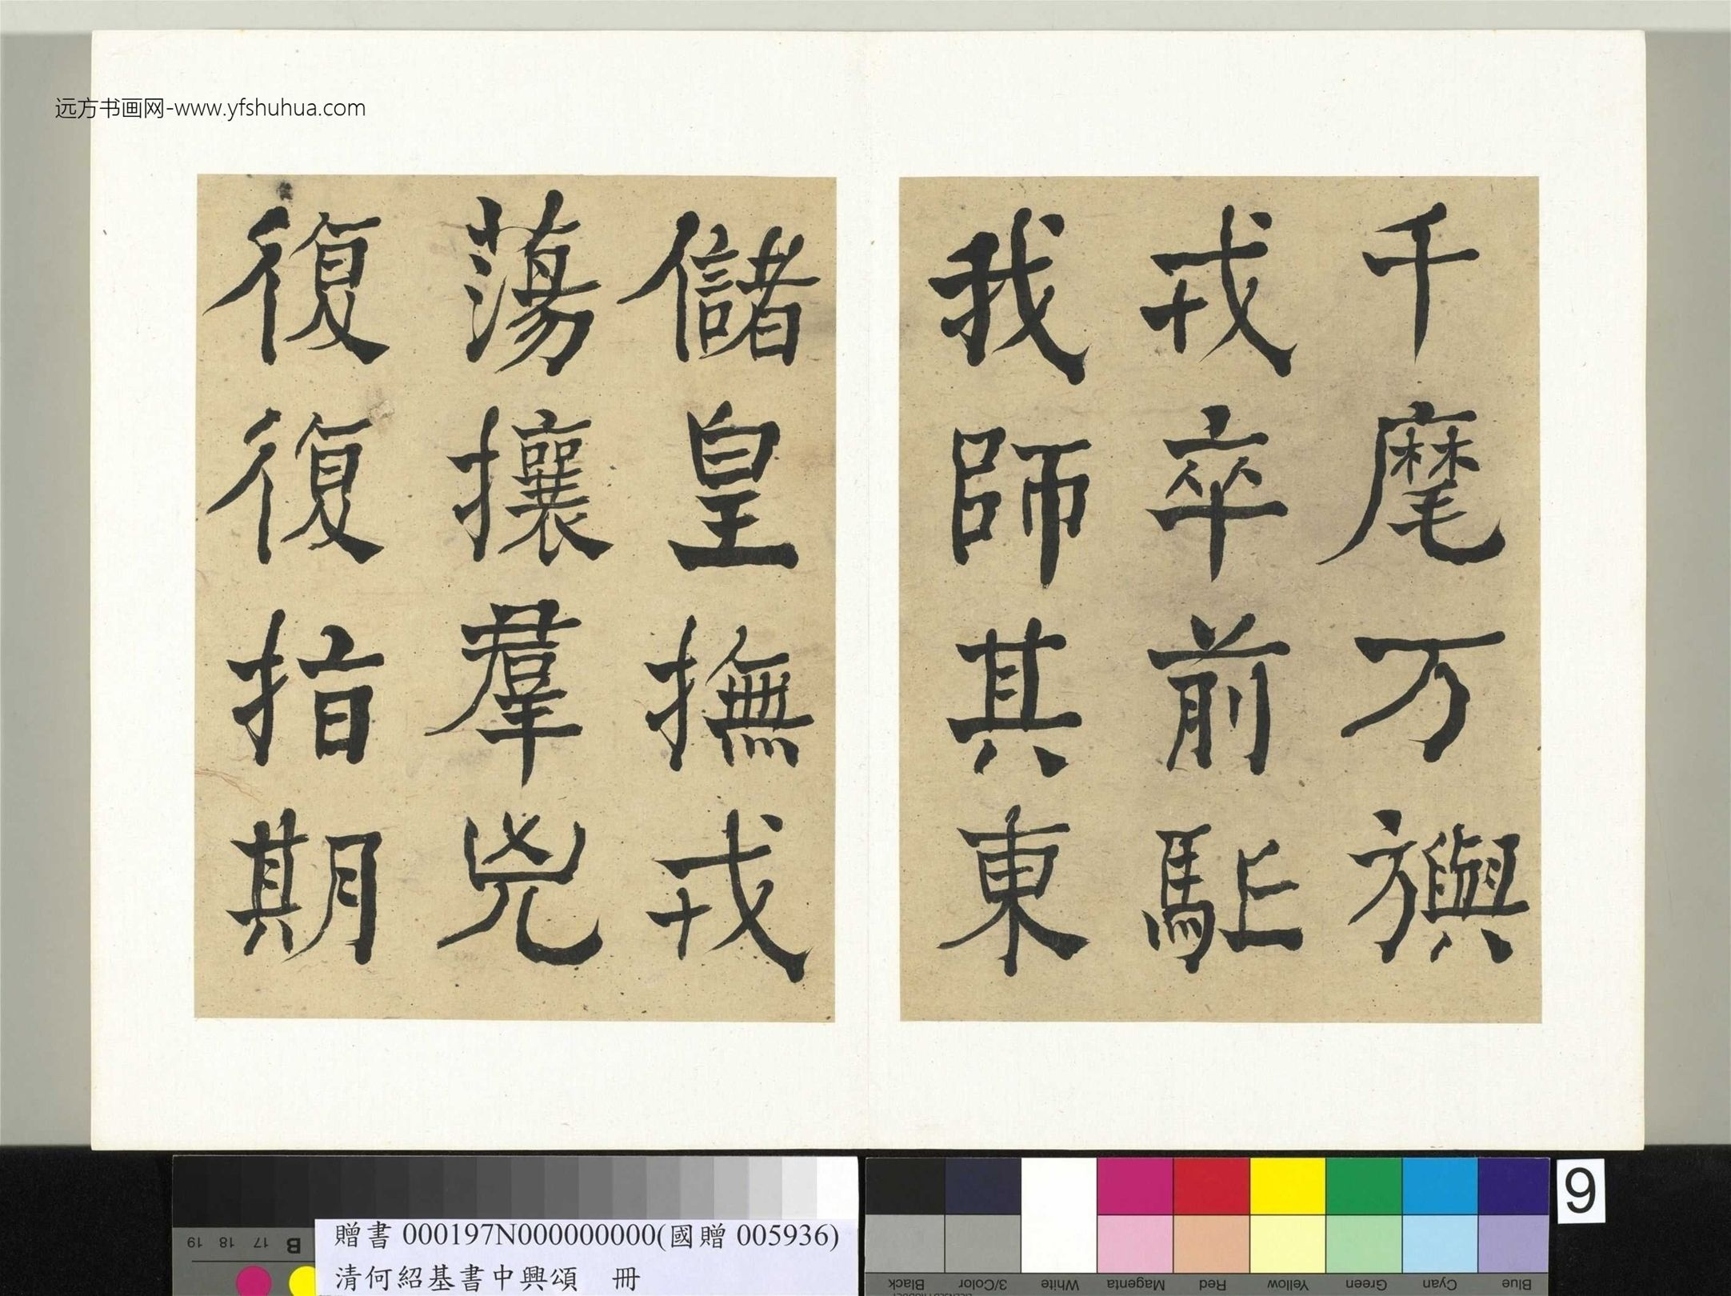 远方书画网-www.yfshuhua.com
千麾万旟
戎卒前駈
我師其東
儲皇撫戎
蕩攘羣兇
復復指期
贈書 000197N000000000(國贈 005936)
清何紹基書中興頌 冊
9
19 18 17 B
Black 3/Color White Magenta Red Yellow Green Cyan Blue